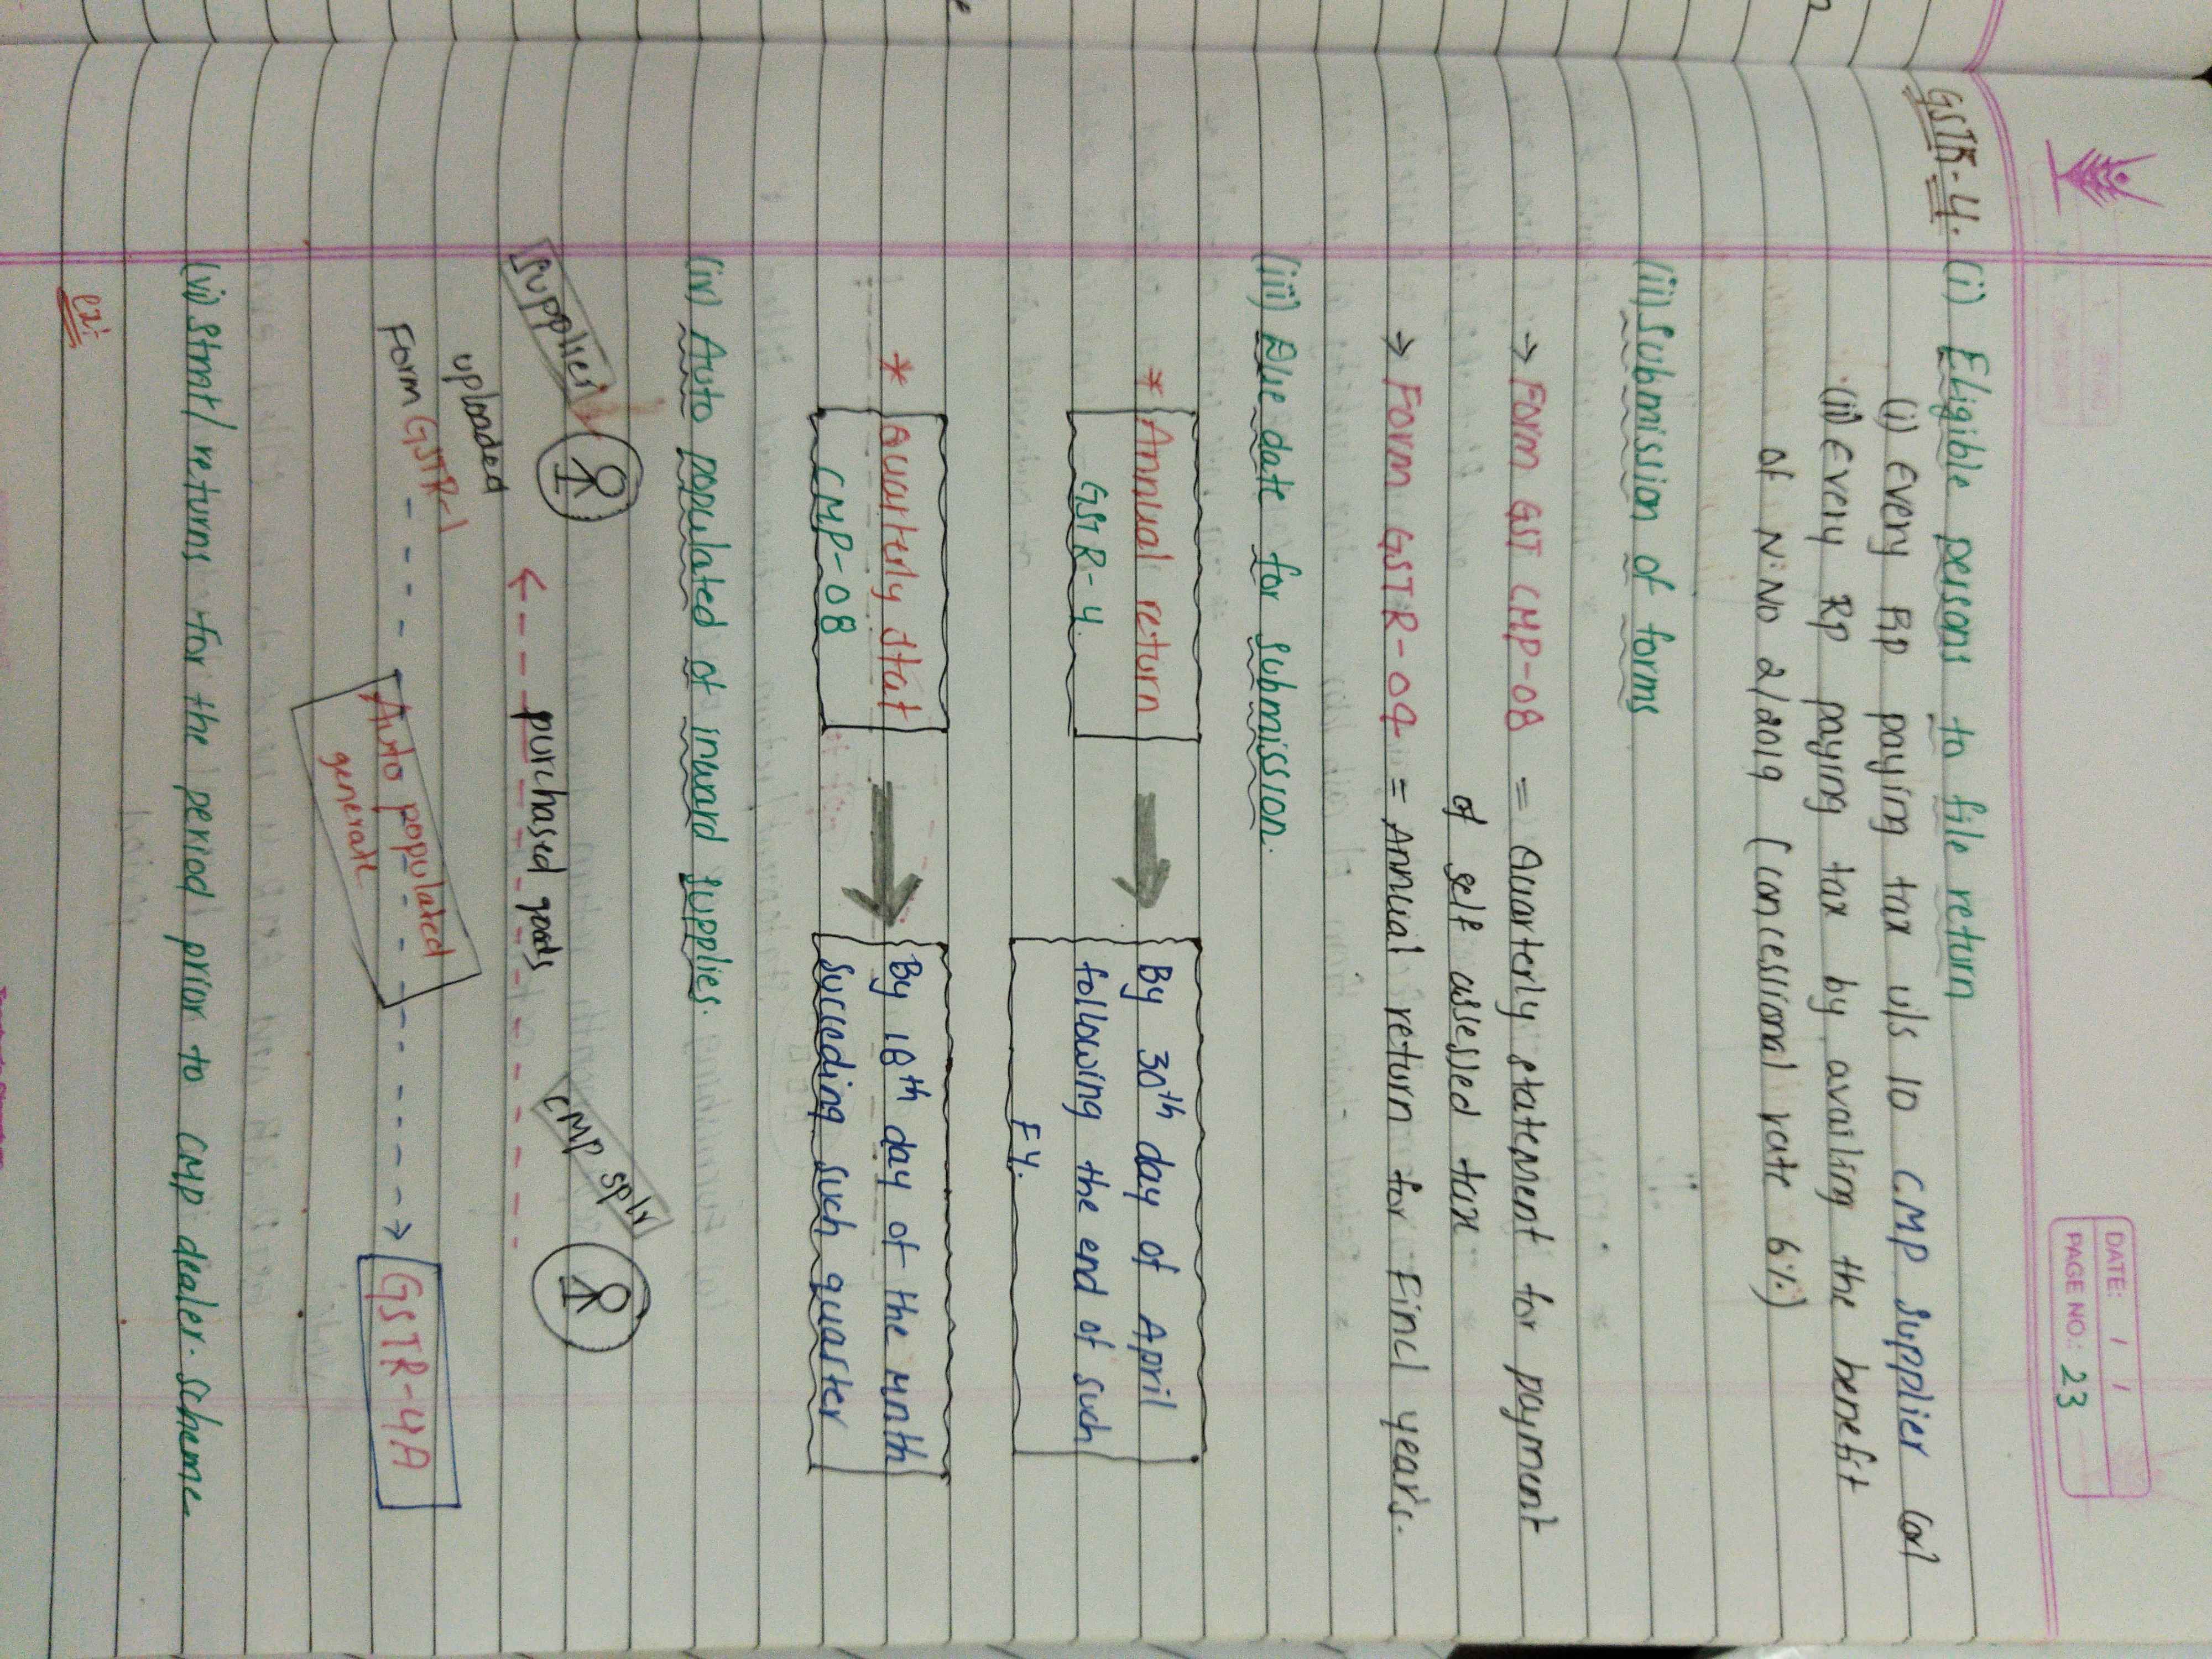 DATE: / /
PAGE NO.: 23
GSTR-4. (i) Eligible persons to file return
(i) Every RP paying tax u/s 10 CMP supplier (or)
(ii) Every RP paying tax by availing the benefit
of N.No 2/2019 (concessional rate 6%)
(ii) Submission of forms
→ Form GST CMP-08 = Quarterly statement for payment
of self assessed tax
→ Form GSTR-04 = Annual return for Fincl years.
(iii) Due date for submission.
* Annual return
GSTR-4.
By 30th day of April
following the end of such
F.Y.
* Quarterly stat
CMP-08
By 18th day of the month
succeding such quarter
(iv) Auto populated of inward supplies.
Supplier
CMP splr
purchased goods
uploaded
Form GSTR-1
Auto populated
generate
GSTR-4A
(vi) Stmt/returns for the period prior to CMP dealer. scheme.
ex: